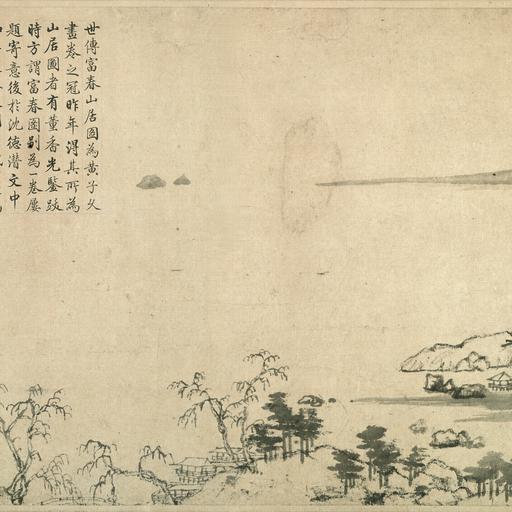 世傳富春山居圖為黃子久
畫卷之冠昨年得其所為
山居圖者有董香光鑒跋
時方謂富春圖別為一卷屢
題寄意後於沈德潛文中